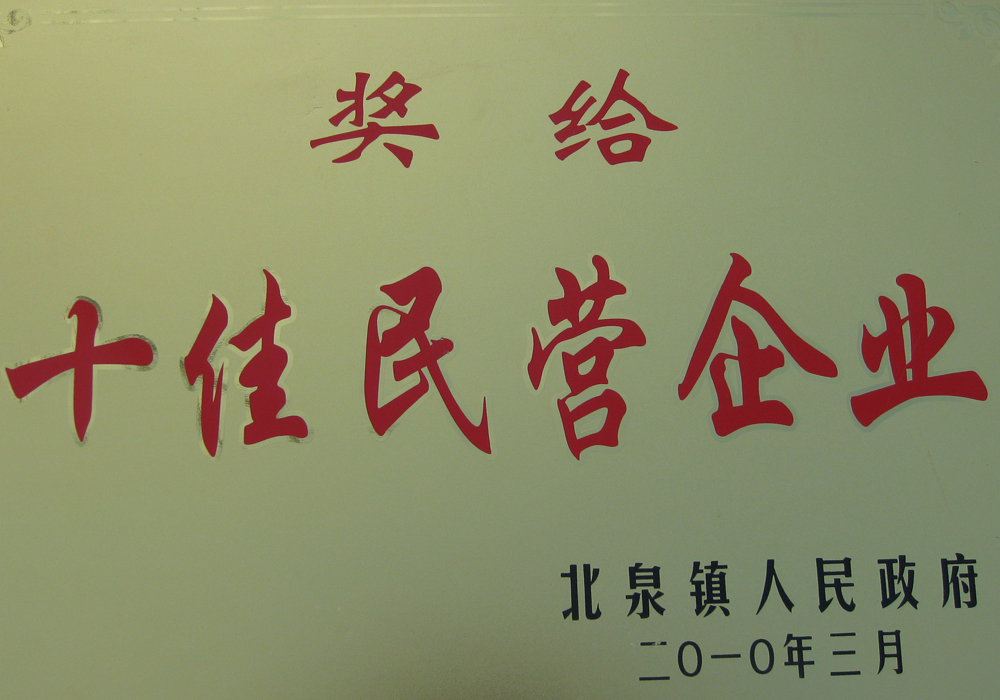 奖给
十佳民营企业
北泉镇人民政府
二0一0年三月